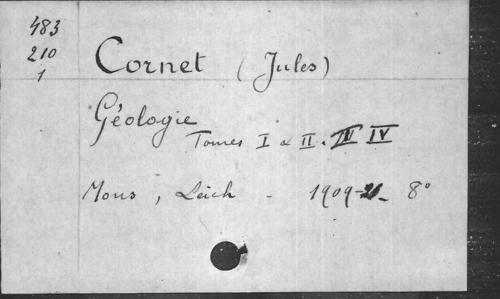 483
210
1
Cornet (Jules)
Géologie
Tomes I & II. III IV
Mons, Leich - 1909-21- 8°